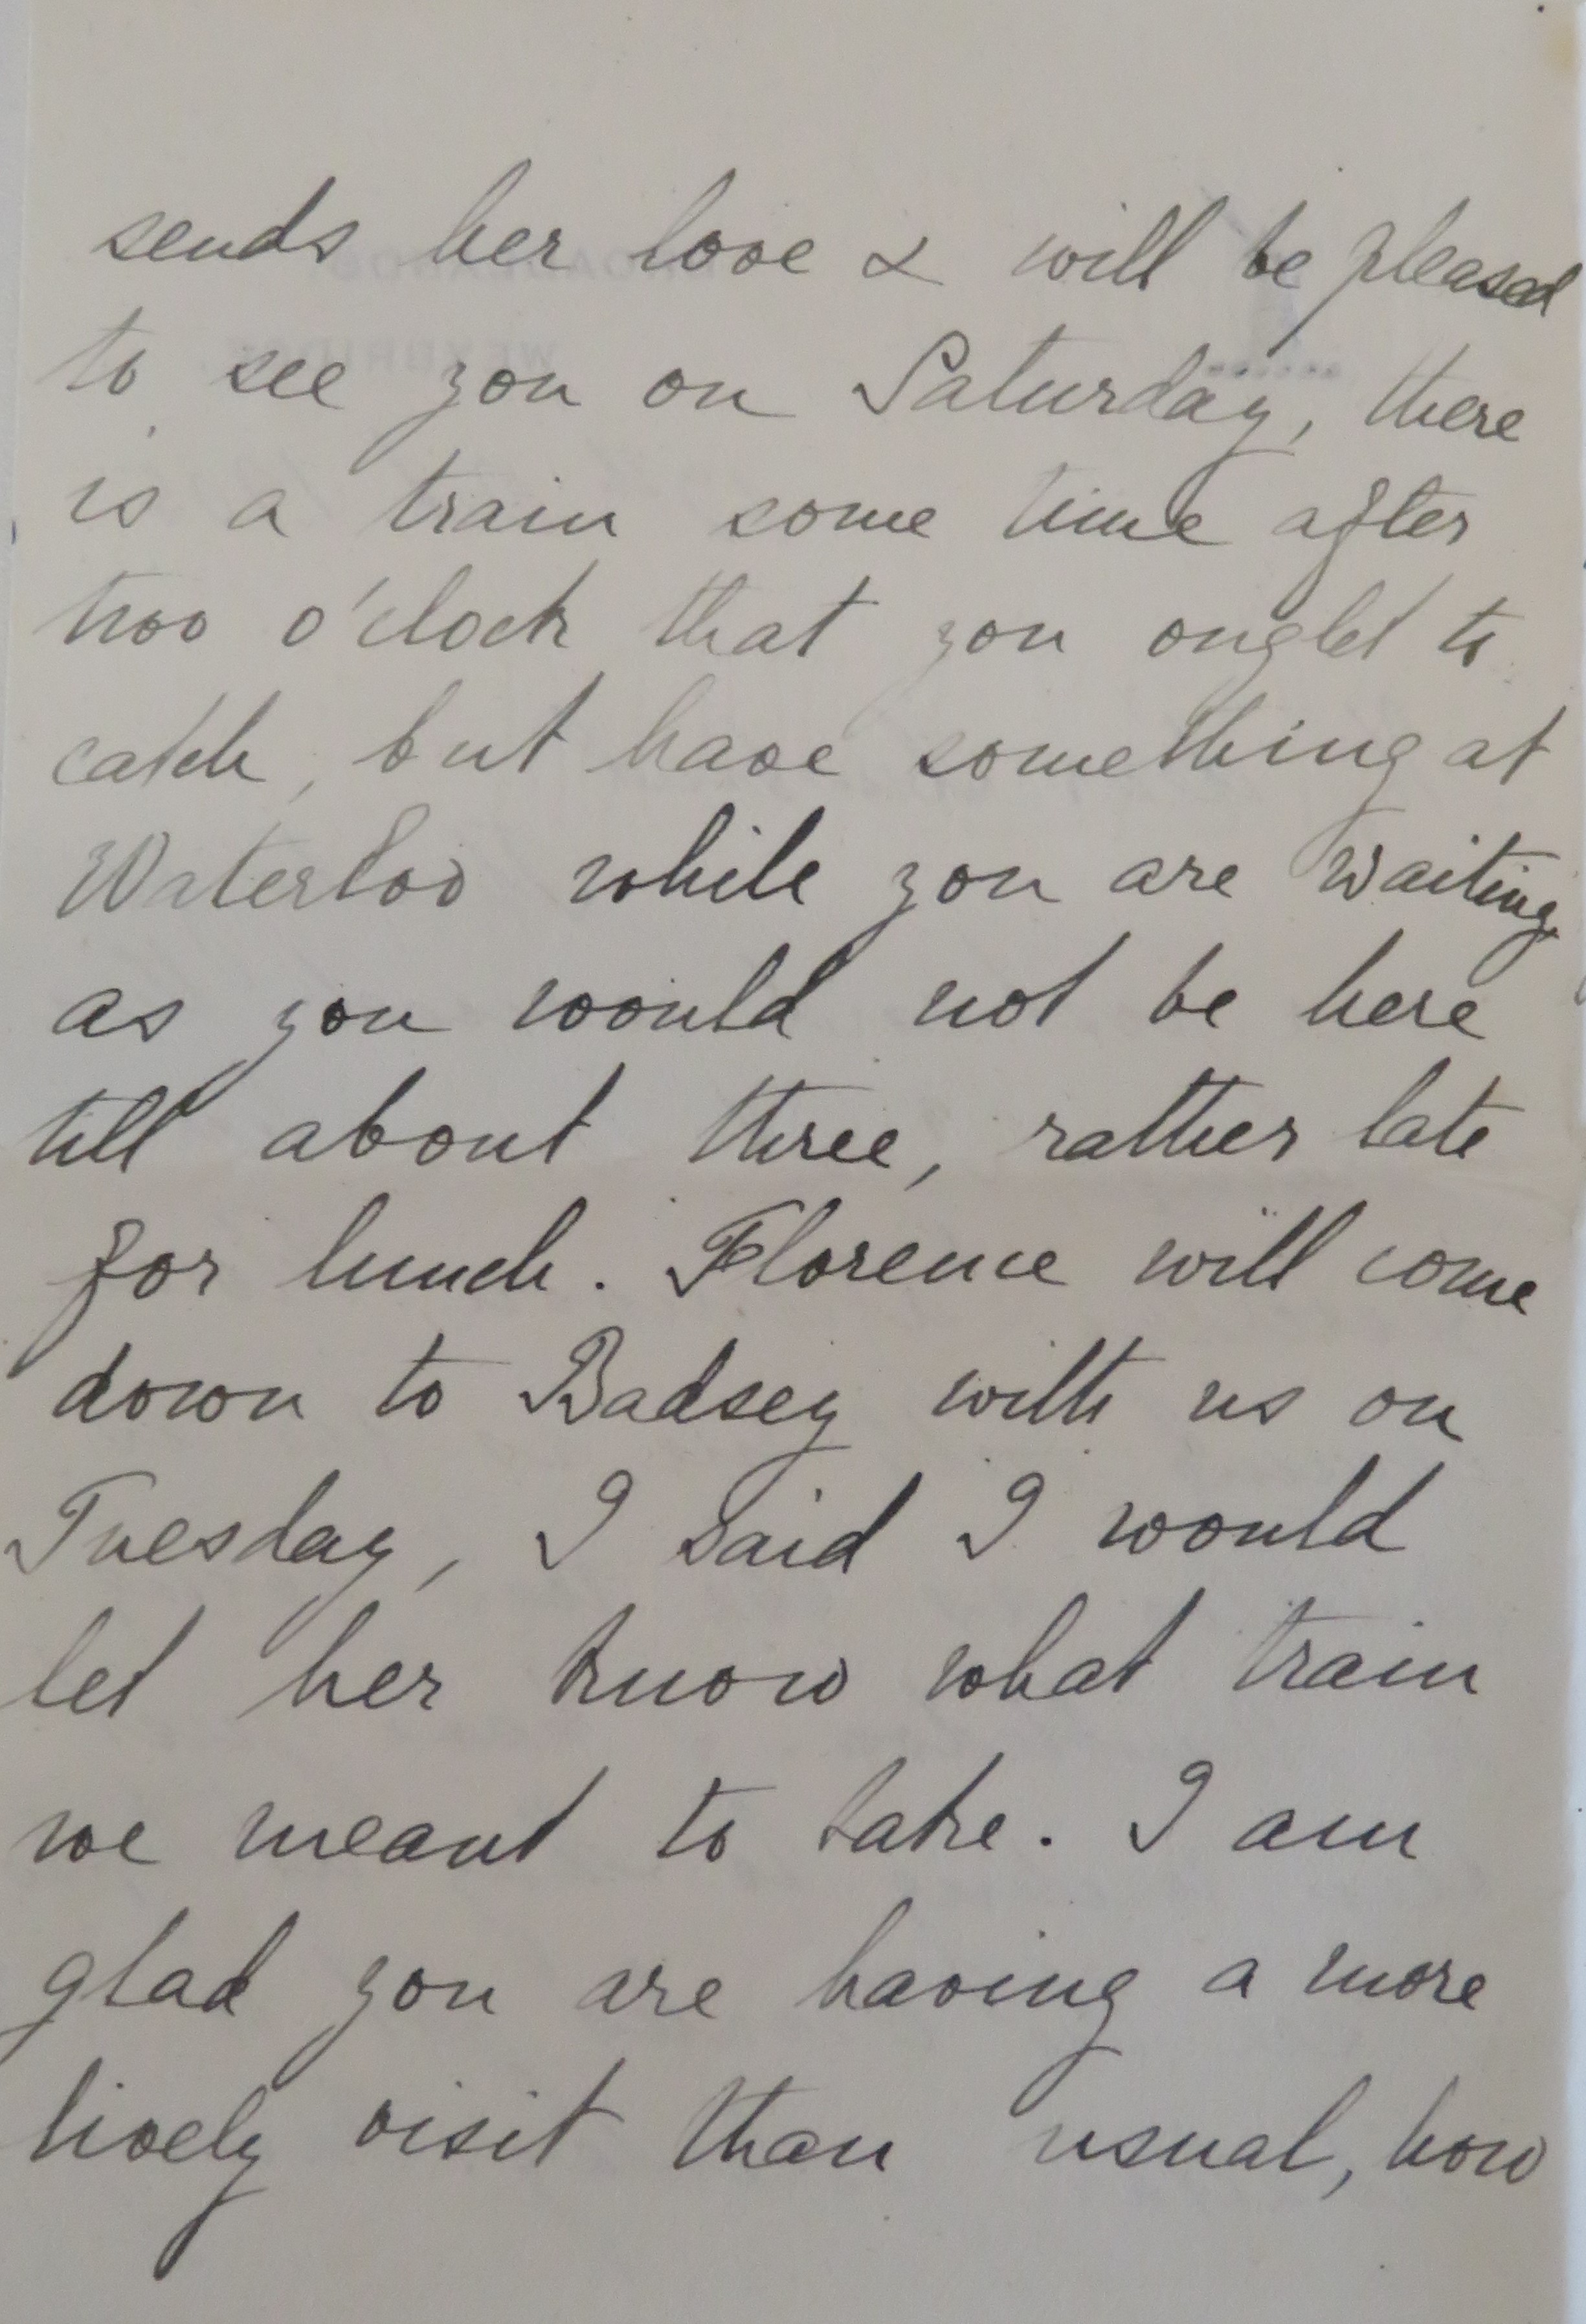 sends her love & will be pleased
to see you on Saturday, there
is a train some time after
two o'clock that you ought to
catch, but have something at
Waterloo while you are waiting
as you would not be here
till about three, rather late
for lunch. Florence will come
down to Badsey with us on
Tuesday, I said I would
let her know what train
we meant to take. I am
glad you are having a more
lively visit than usual, how